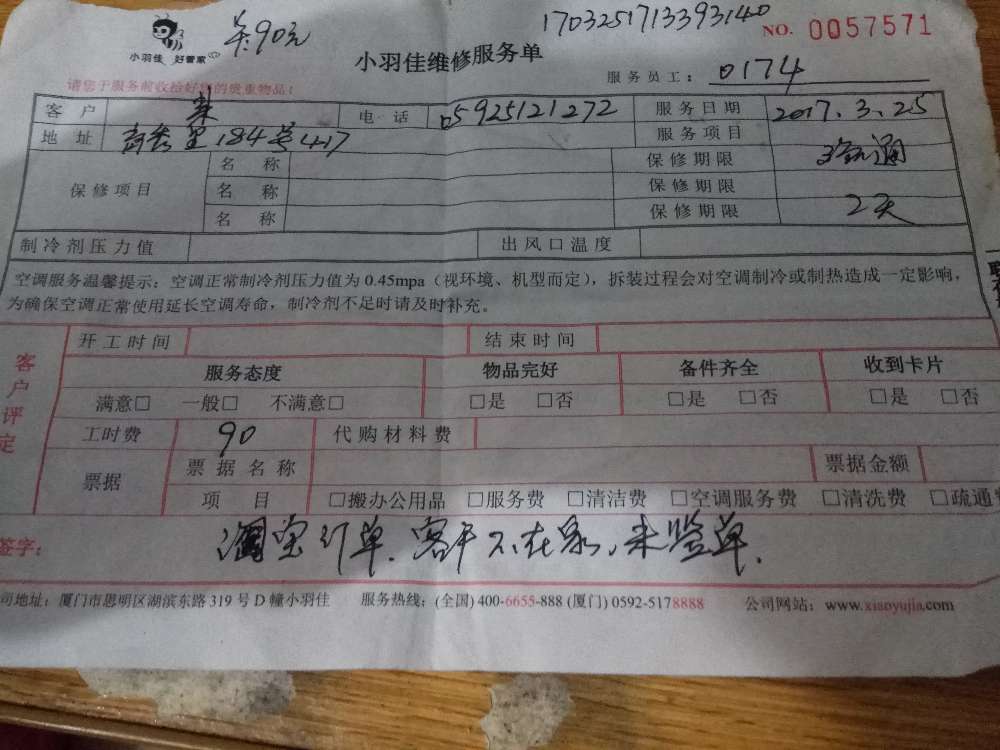 卡:90元 1703251713393140
小羽佳 好管家 小羽佳维修服务单 NO. 0057571
请您于服务前收给好您的贵重物品! 服务员工: 0174
客户 电话 05925121272 服务日期 2017.3.25
地址 184号417 服务项目
保修项目 名称 保修期限
名称 保修期限
名称 保修期限 2天
制冷剂压力值 出风口温度
空调服务温馨提示:空调正常制冷剂压力值为0.45mpa(视环境、机型而定),拆装过程会对空调制冷或制热造成一定影响,
为确保空调正常使用延长空调寿命,制冷剂不足时请及时补充。
客户评定
开工时间 结束时间
服务态度 物品完好 备件齐全 收到卡片
满意□ 一般□ 不满意□ □是 □否 □是 □否 □是 □否
工时费 90 代购材料费
票据 票据名称 票据金额
项目 □搬办公用品 □服务费 □清洁费 □空调服务费 □清洗费 □疏通费
签字: 订单.客户不在家,未签单.
司地址:厦门市思明区湖滨东路319号D幢小羽佳 服务热线:(全国)400-6655-888(厦门)0592-5178888 公司网站:www.xiaoyujia.com